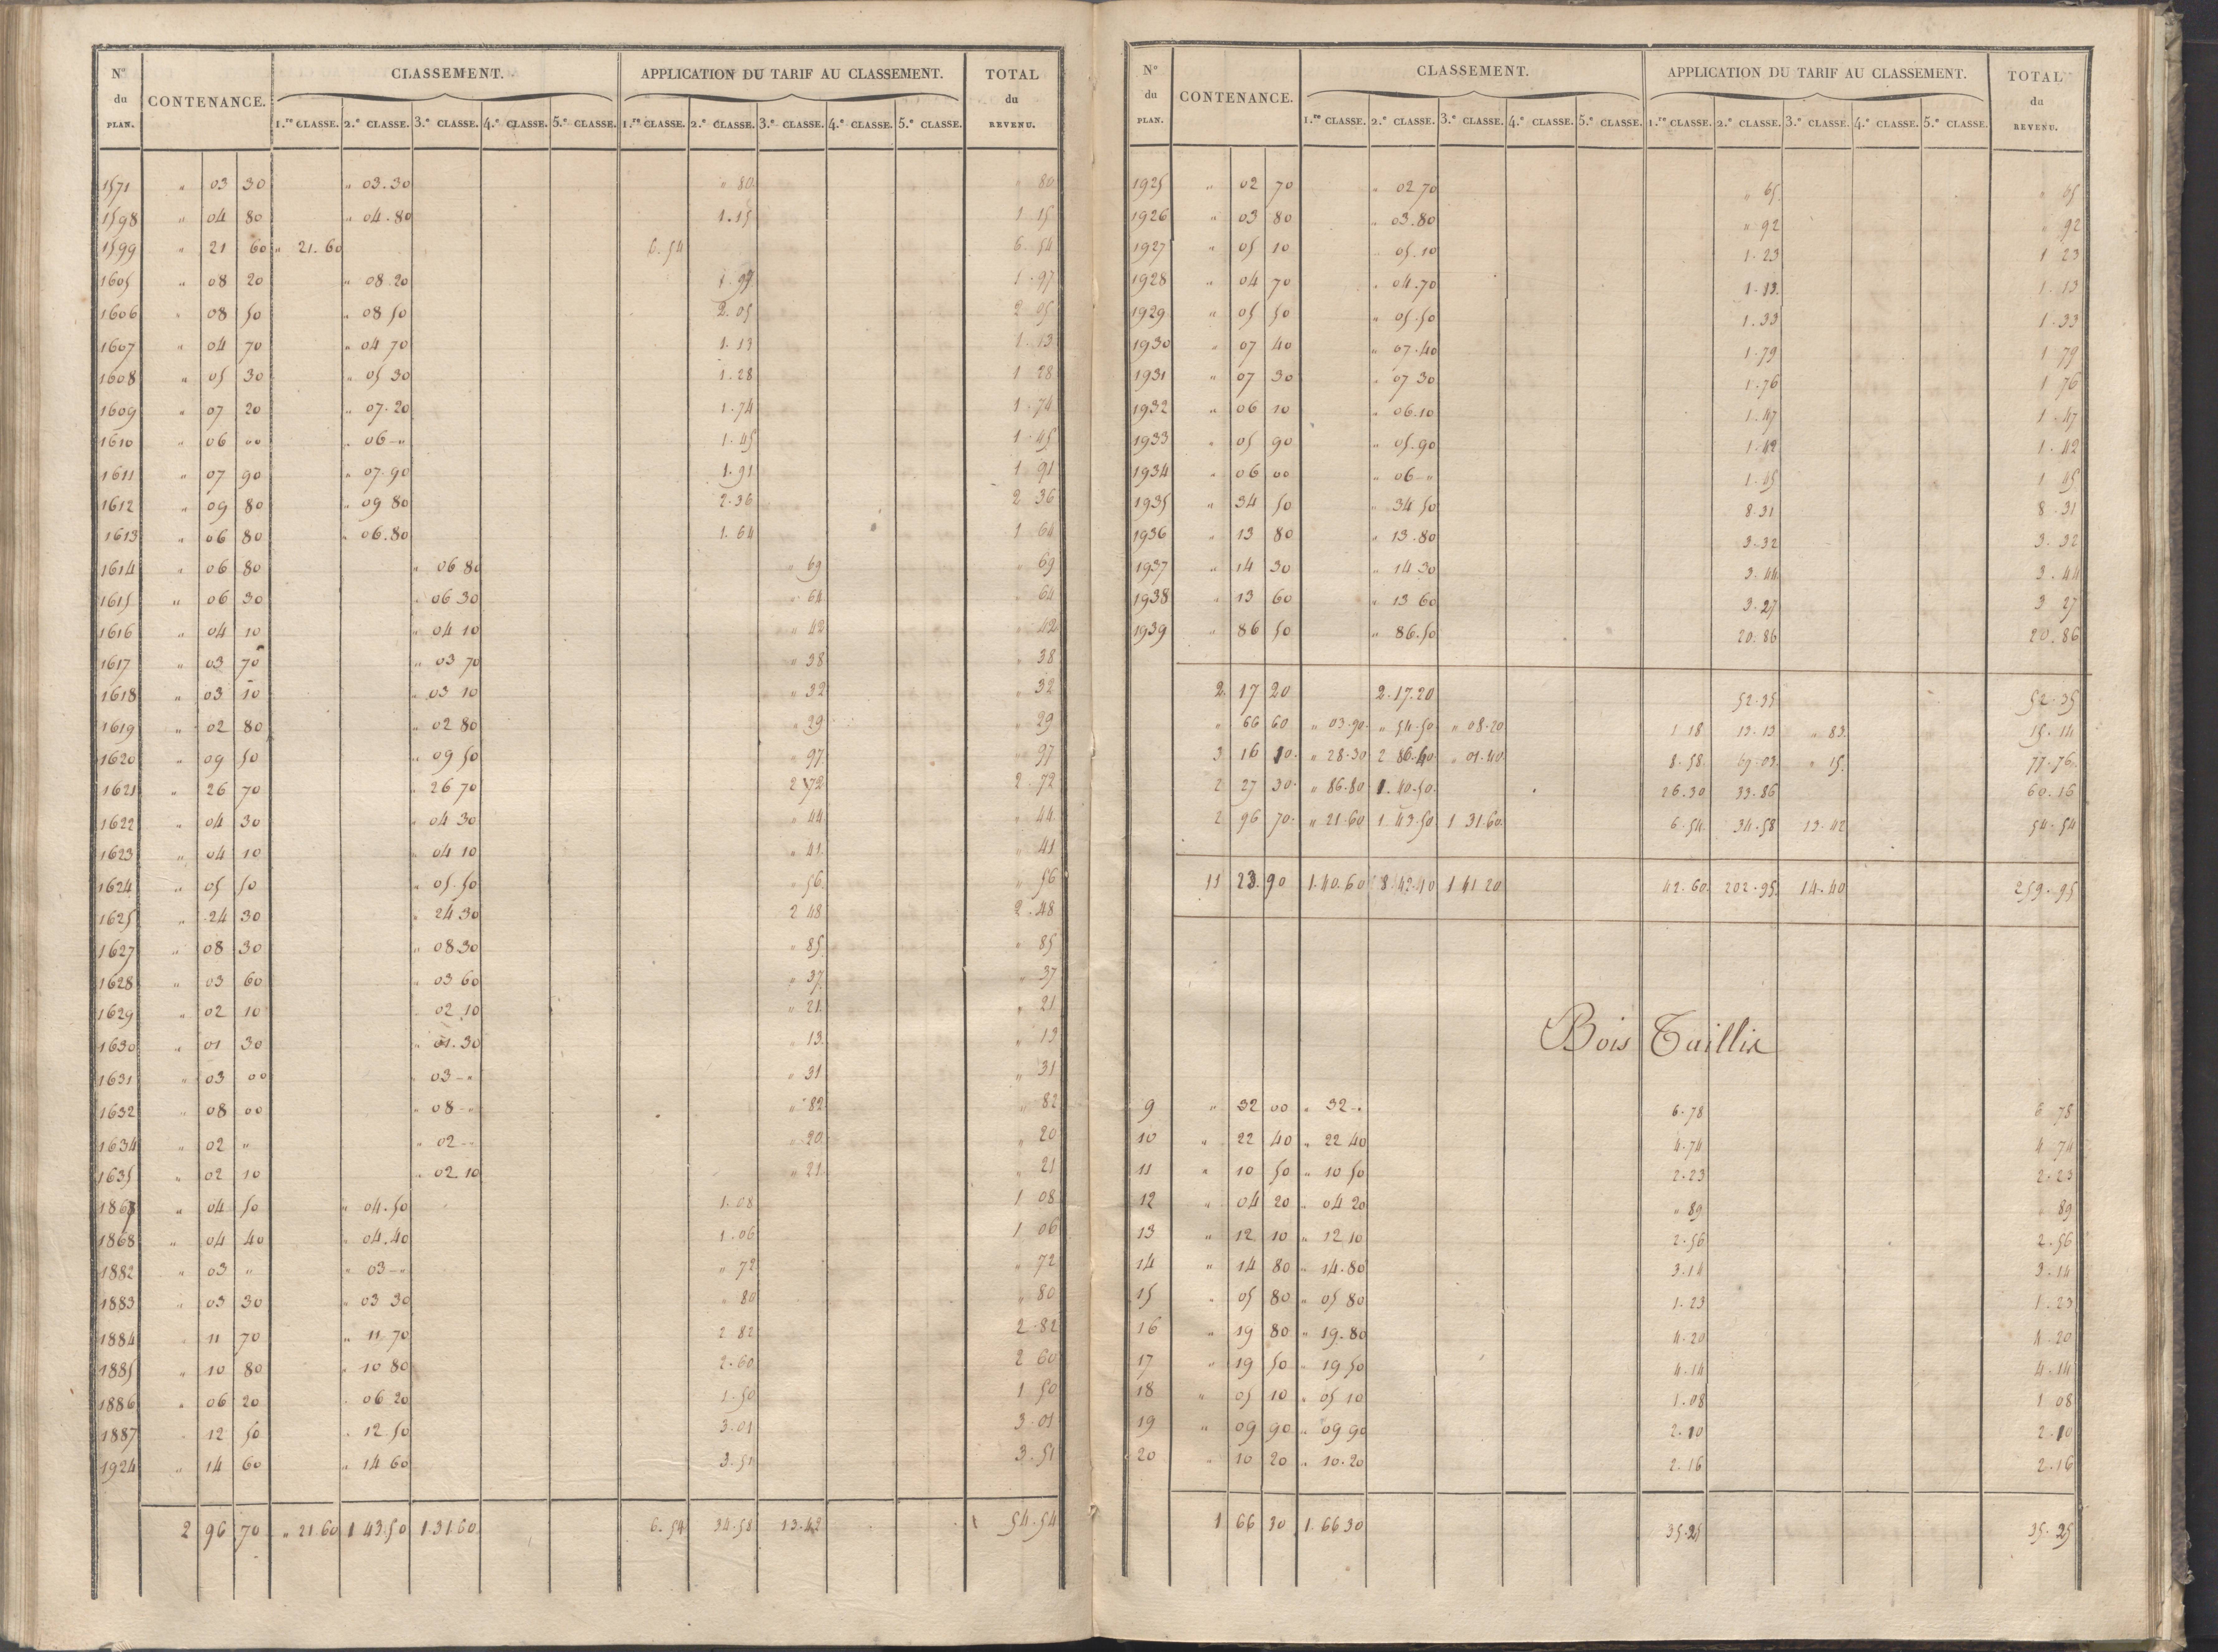 N° du PLAN. CONTENANCE. CLASSEMENT. APPLICATION DU TARIF AU CLASSEMENT. TOTAL du REVENU.
1.re CLASSE. 2.e CLASSE. 3.e CLASSE. 4.e CLASSE. 5.e CLASSE. 1.re CLASSE. 2.e CLASSE. 3.e CLASSE. 4.e CLASSE. 5.e CLASSE.
1571 " 03 30 " 03.30 " 80 " 80
1598 " 04 80 " 04.80 1.15 1 15
1599 " 21 60 " 21.60 6.54 6 54
1605 " 08 20 " 08 20 1.97 1.97
1606 " 08 50 " 08 50 2.05 2 05
1607 " 04 70 " 04 70 1.13 1.13
1608 " 05 30 " 05 30 1.28 1 28
1609 " 07 20 " 07.20 1.74 1.74
1610 " 06 00 " 06-" 1.45 1.45
1611 " 07 90 " 07.90 1.91 1 91
1612 " 09 80 " 09 80 2.36 2 36
1613 " 06 80 " 06.80 1.64 1 64
1614 " 06 80 " 06 80 " 69 " 69
1615 " 06 30 " 06 30 " 64 " 64
1616 " 04 10 " 04 10 " 42 " 42
1617 " 03 70 " 03 70 " 38 " 38
1618 " 03 10 " 03 10 " 32 " 32
1619 " 02 80 " 02 80 " 29 " 29
1620 " 09 50 " 09 50 " 97 " 97
1621 " 26 70 " 26 70 2 72 2.72
1622 " 04 30 " 04 30 " 44 " 44
1623 " 04 10 " 04 10 " 41 " 41
1624 " 05 50 " 05.50 " 56 " 56
1625 " 24 30 " 24 30 2 48 2.48
1627 " 08 30 " 08 30 " 85 " 85
1628 " 03 60 " 03 60 " 37 " 37
1629 " 02 10 02 10 " 21 " 21
1630 " 01 30 " 01.30 " 13 " 13
1631 " 03 00 " 03-" " 31 " 31
1632 " 08 00 " 08-" " 82 " 82
1634 " 02 " " 02-" " 20 " 20
1635 " 02 10 " 02.10 " 21 " 21
1867 " 04 50 " 04.50 1.08 1 08
1868 " 04 40 " 04.40 1.06 1 06
1882 " 03 " " 03-" " 72 " 72
1883 " 03 30 " 03 30 " 80 " 80
1884 " 11 70 " 11 70 2 82 2.82
1885 " 10 80 " 10 80 2.60 2 60
1886 " 06 20 " 06 20 1.50 1 50
1887 " 12 50 " 12 50 3.01 3.01
1924 " 14 60 " 14 60 3.51 3.51
2 96 70 " 21.60 1 43.50 1.31.60 6.54 34.58 13.42 54.54
N° du PLAN. CONTENANCE. CLASSEMENT. APPLICATION DU TARIF AU CLASSEMENT. TOTAL du REVENU.
1.re CLASSE. 2.e CLASSE. 3.e CLASSE. 4.e CLASSE. 5.e CLASSE. 1.re CLASSE. 2.e CLASSE. 3.e CLASSE. 4.e CLASSE. 5.e CLASSE.
1925 " 02 70 " 02 70 " 65 " 65
1926 " 03 80 " 03.80 " 92 " 92
1927 " 05 10 " 05.10 1.23 1 23
1928 " 04 70 " 04.70 1.13 1.13
1929 " 05 50 " 05.50 1.33 1.33
1930 " 07 40 " 07.40 1.79 1 79
1931 " 07 30 " 07 30 1.76 1 76
1932 " 06 10 " 06.10 1.47 1.47
1933 " 05 90 " 05.90 1.42 1.42
1934 " 06 00 " 06-" 1.45 1 45
1935 " 34 50 " 34 50 8.31 8.31
1936 " 13 80 " 13.80 3.32 3.32
1937 " 14 30 " 14 30 3.44 3.44
1938 " 13 60 " 13 60 3.27 3 27
1939 " 86 50 " 86.50 20.86 20.86
2 17 20 2.17.20 52.35 52.35
" 66 60 " 03.90 " 54.50 " 08.20 1 18 13.13 " 83 15.14
3 16 10 " 28.30 2 86.40 " 01.40 8.58 69.03 " 15 77.76
2 27 30 " 86.80 1.40.50 26.30 33.86 60.16
2 96 70 " 21.60 1 43.50 1 31.60 6.54 34.58 13.42 54.54
11 23.90 1.40.60 8.42.10 1 41 20 42.60 202.95 14.40 259.95
Bois Taillis
9 " 32 00 " 32-" 6.78 6 78
10 " 22 40 " 22 40 4.74 4 74
11 " 10 50 " 10 50 2.23 2.23
12 " 04 20 " 04 20 " 89 " 89
13 " 12 10 " 12 10 2.56 2.56
14 " 14 80 " 14.80 3.14 3.14
15 " 05 80 " 05 80 1.23 1.23
16 " 19 80 " 19.80 4.20 4.20
17 " 19 50 " 19.50 4.14 4.14
18 " 05 10 " 05 10 1.08 1 08
19 " 09 90 " 09 90 2.10 2.10
20 " 10 20 " 10.20 2.16 2.16
1 66 30 1.66 30 35.25 35.25